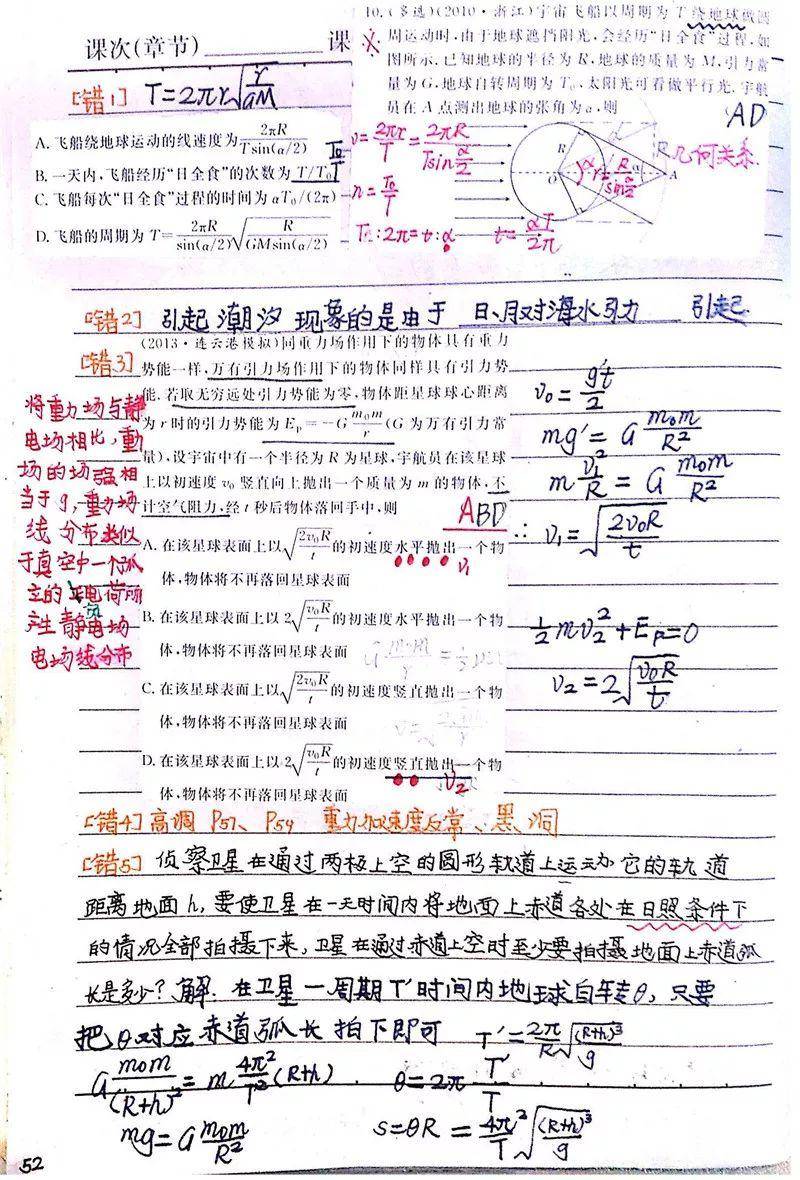 课次(章节)________课
10. (多选)(2010·浙江)宇宙飞船以周期为 T 绕地球做圆
周运动时,由于地球遮挡阳光,会经历“日全食”过程,如
图所示.已知地球的半径为 R,地球的质量为 M,引力常
量为 G,地球自转周期为 T₀,太阳光可看做平行光,宇航
员在 A 点测出地球的张角为 α,则
AD
[错1] T=2πr√(r/GM)
A. 飞船绕地球运动的线速度为 2πR/(Tsin(α/2))
B. 一天内,飞船经历“日全食”的次数为 T/T₀
T₀/T
C. 飞船每次“日全食”过程的时间为 αT₀/(2π)
D. 飞船的周期为 T= 2πR/sin(α/2) √(R/(GMsin(α/2)))
v=2πr/T=2πR/(Tsin α/2)
n=T₀/T
T:2π=t:α t=αT/2π
R
O
A
α
r=R/(sin α/2)
R几何关系
[错2] 引起潮汐现象的是由于 日、月对海水引力 引起
[错3]
(2013·连云港模拟)同重力场作用下的物体具有重力
势能一样,万有引力场作用下的物体同样具有引力势
能.若取无穷远处引力势能为零,物体距星球球心距离
为 r 时的引力势能为 Eₚ=-G m₀m/r (G 为万有引力常
量),设宇宙中有一个半径为 R 为星球,宇航员在该星球
上以初速度 v₀ 竖直向上抛出一个质量为 m 的物体,不
计空气阻力,经 t 秒后物体落回手中,则
ABD
A. 在该星球表面上以√(2v₀R/t)的初速度水平抛出一个物
v₁
体,物体将不再落回星球表面
B. 在该星球表面上以 2√(v₀R/t)的初速度水平抛出一个物
体,物体将不再落回星球表面
C. 在该星球表面上以√(2v₀R/t)的初速度竖直抛出一个物
体,物体将不再落回星球表面
D. 在该星球表面上以 2√(v₀R/t)的初速度竖直抛出一个物
v₂
体,物体将不再落回星球表面
将重力场与静
电场相比,重力
场的场强相
当于g,重力场
线分布类似
于真空中一个孤
立的正电荷所
负
产生静电场
电场线分布
v₀=g't/2
mg'=G m₀m/R²
m v₁²/R=G m₀m/R²
∴ v₁=√(2v₀R/t)
½mv₂²+Eₚ=0
v₂=2√(v₀R/t)
[错4] 高调 P57、P59 重力加速度反常、黑洞
[错5] 侦察卫星在通过两极上空的圆形轨道上运动 它的轨道
距离地面h,要使卫星在一天时间内将地面上赤道各处在日照条件下
的情况全部拍摄下来,卫星在通过赤道上空时至少要拍摄地面上赤道弧
长是多少? 解: 在卫星一周期T'时间内地球自转θ,只要
把θ对应赤道弧长拍下即可 T'=2π/R √((R+h)³/g)
G m₀m/(R+h)²=m 4π²/T'²(R+h) θ=2π T'/T
mg=G m₀m/R² s=θR=4π²/T √((R+h)³/g)
52